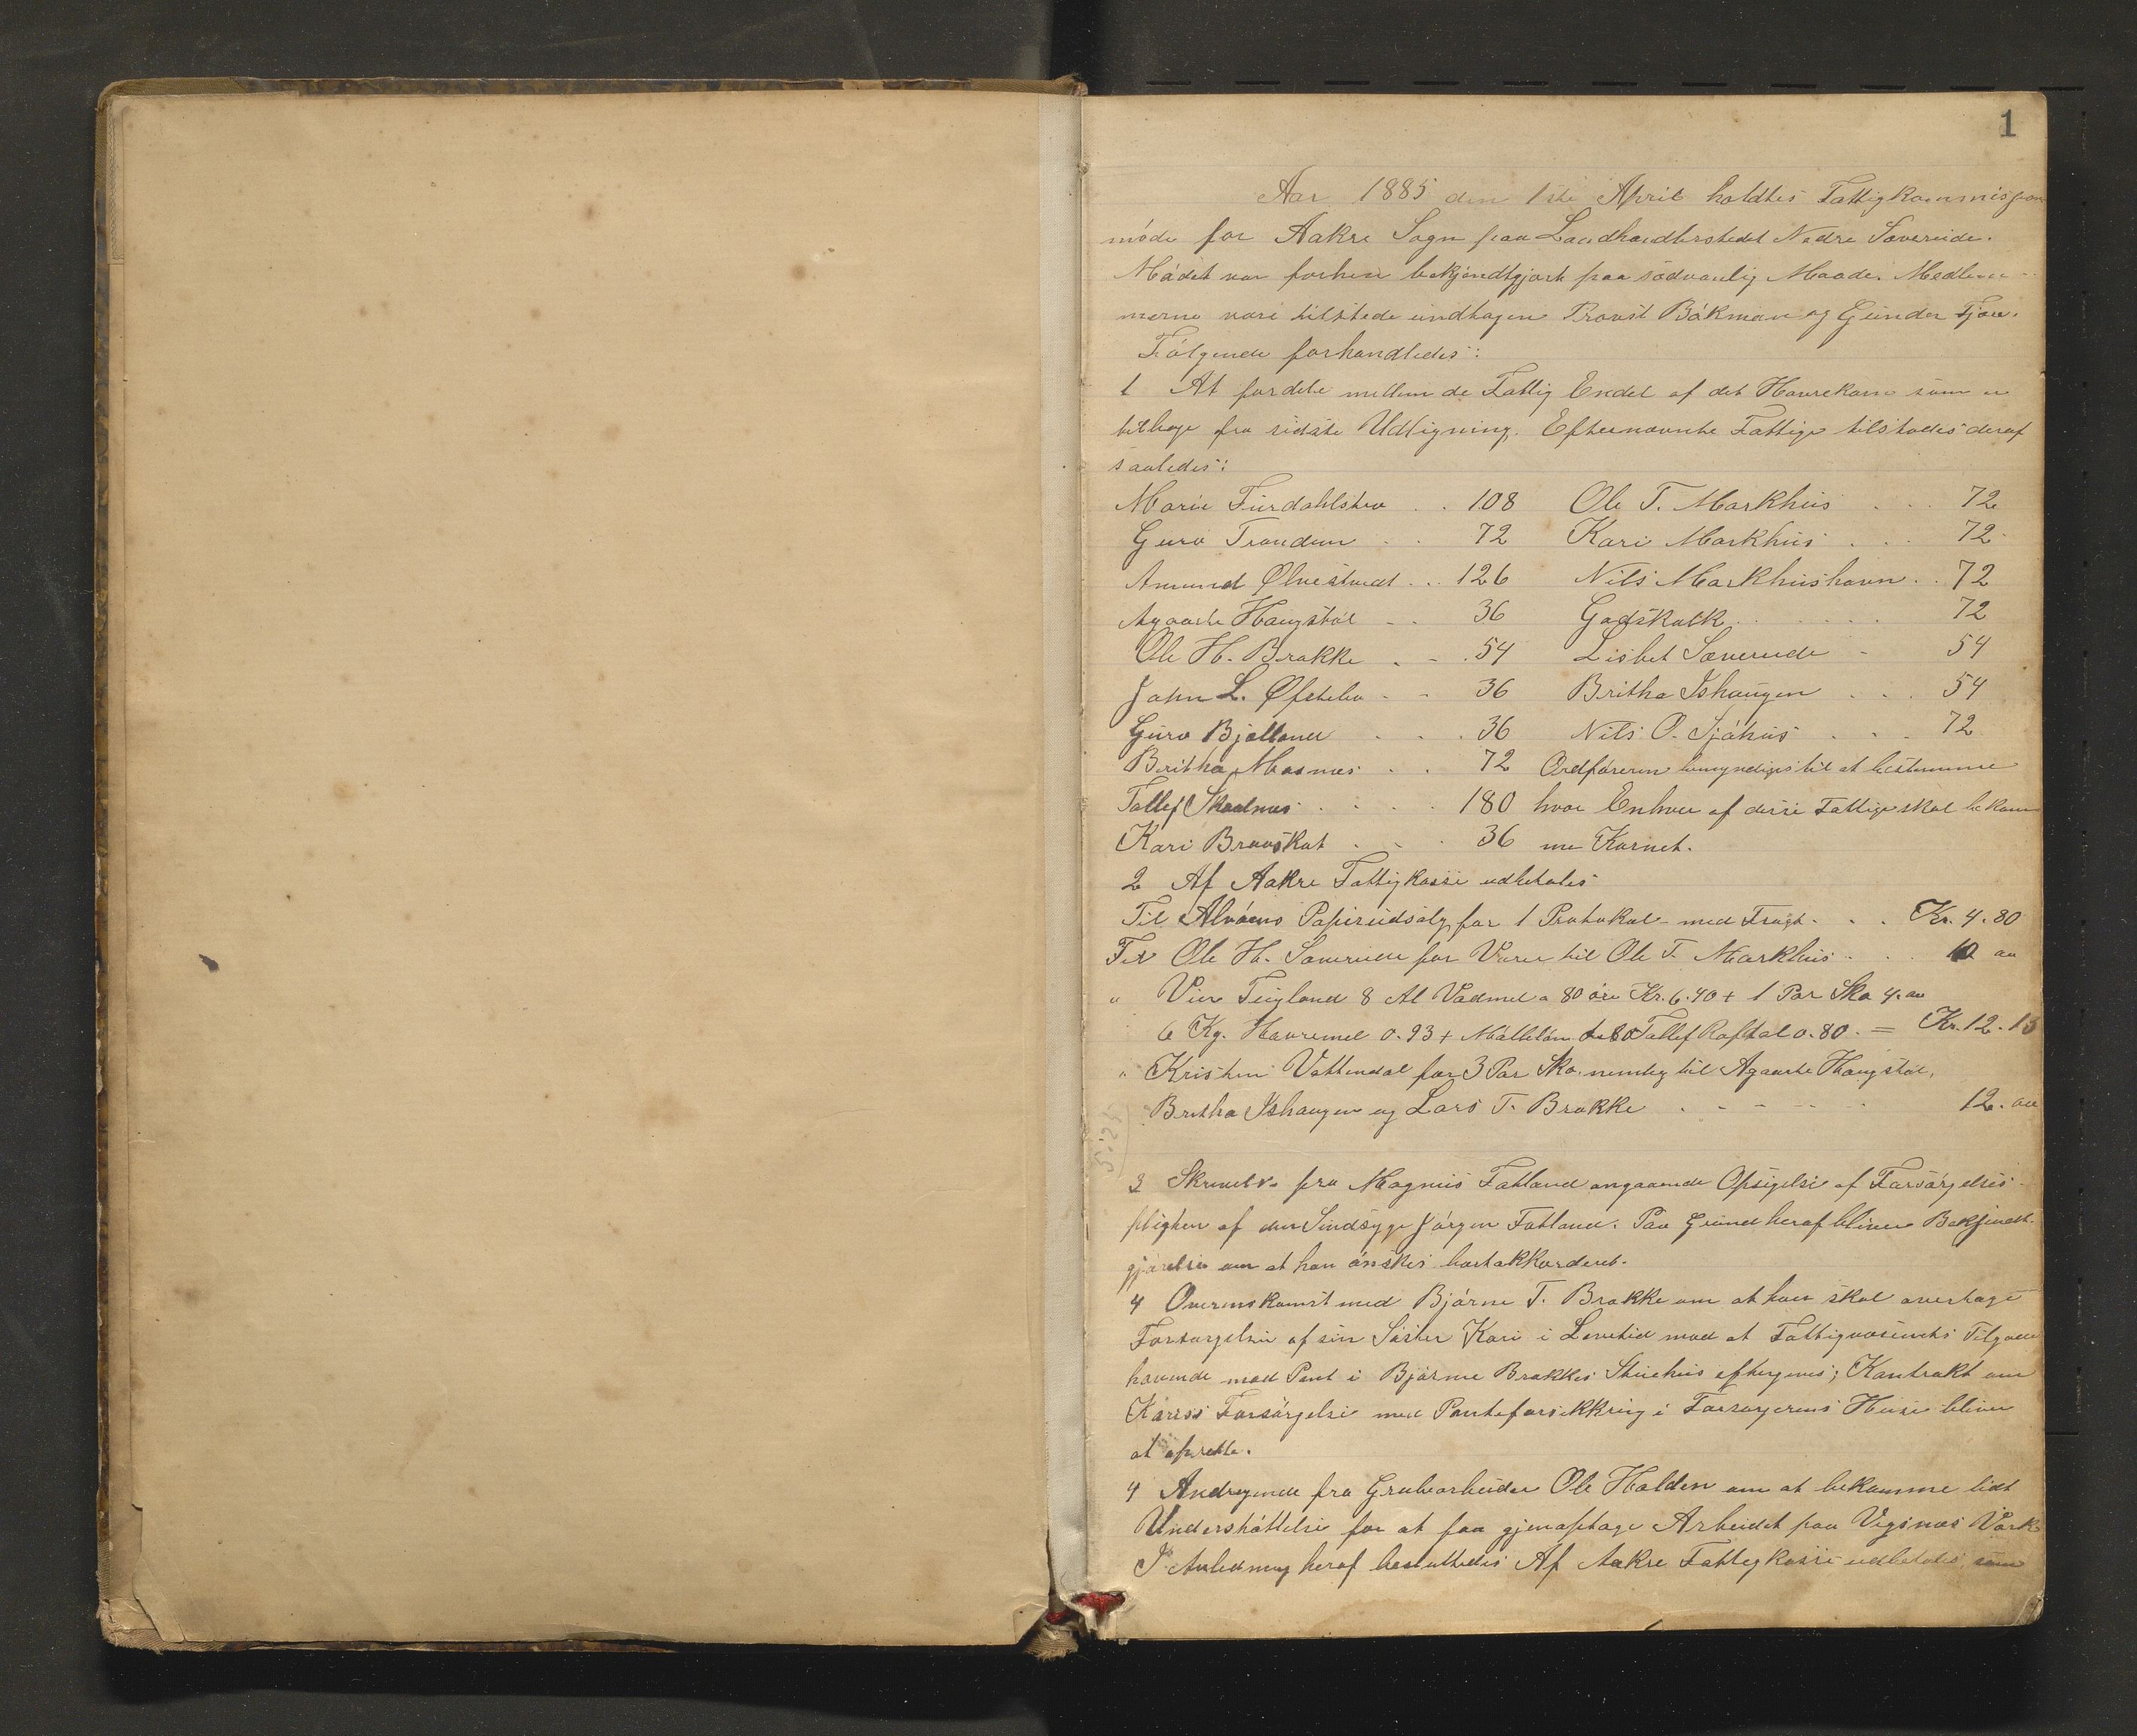 1
Aar 1885 den 1ste April holdtes Fattigkommissions
møde for Aakre Sogn paa Landhandlerstedet Nedre Sævereide.
Mødet var forhen bekjendtgjort paa sædvanlig Maade. Medlem-
merne vare tilstede undtagen Provst Bökman og Gunder Fjøn.
Følgende forhandledes:
1 At fordele mellem de Fattig Endel af det Havrekorn som er
tilbage fra sidste Udligning. Efternævnte Fattige tilstodes deraf
saaledes:
Marie Furdahlstrø . . 108 Ole T. Markhus . . . 72
Guro Trondun . . 72 Kari Markhus . . . 72
Amund Ølvestvedt . . 126 Nils Markhushavn . . 72
Agaarte Haugstøl . . 36 Godskalk . . . . . 72
Ole H. Brakke . . . 54 Lisbet Sævereide - 54
John L. Øfstebø - - 36 Britha Ishaugen . . . 54
Guro Bjølland . . . 36 Nils O. Sjøhus . . . 72
Britha Mosnes . . 72 Ordføreren bemyndiges til at bestemme
Tollef Skaalnes . . . . 180 hvor Enhver af disse Fattige skal bekom
Kari Bravskat . . . 36 me Kornet.
2 Af Aakre Fattigkasse udbetales
Til Alvøens Papirudsalg for 1 Protokol med Fragt . . . Kr. 4.80
Til Ole H. Sævereide for Varer til Ole T. Markhus . . . 10 oo
" Vier Teigland 8 Al Vadmel a 80 øre Kr. 6.40 + 1 Par Sko 4.oo
6 Kg. Havremel 0.93 + Tollef Raftal 0.80. = Kr. 12.13
" Kristen Vattendal for 3 Par Sko, nemlig til Agaarte Haugstøl,
Britha Ishaugen og Lars T. Brakke . - - - - 12.oo
3 Skrivelse fra Magnus Fatland angaaende Opsigelse af Forsørgelses-
pligten af den Sindsyge Jørgen Fatland. Paa Grund heraf bliver Bekjendt-
gjørelse om at han ønskes bortakkorderet.
4 Overenskomst med Bjørne T. Brakke om at han skal overtage
Forsørgelsen af sin Søster Kari i Levetid mod at Fattigvæsenets Tilgode
havende mod Pant i Bjørne Brakkes Stuehus eftergives; Kontrakt om
Karis Forsørgelse med Panteforsikkring i Forsørgerens Huse bliver
at oprette.
4 Andragende fra Grubearbeider Ole Halden om at bekomme lidt
Understøttelse for at faa gjenoptage Arbeidet paa Vigsnæs Værk
I Anledning heraf besluttedes Af Aakre Fattigkasse udbetales som